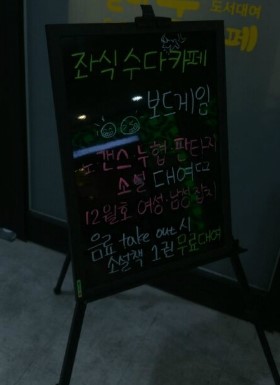 도서대여
카페
좌식 수다카페
보드게임
로맨스·무협·판타지
소설 대여
12월호 여성·남성 잡지
음료 take out 시
소설책 1권 무료대여